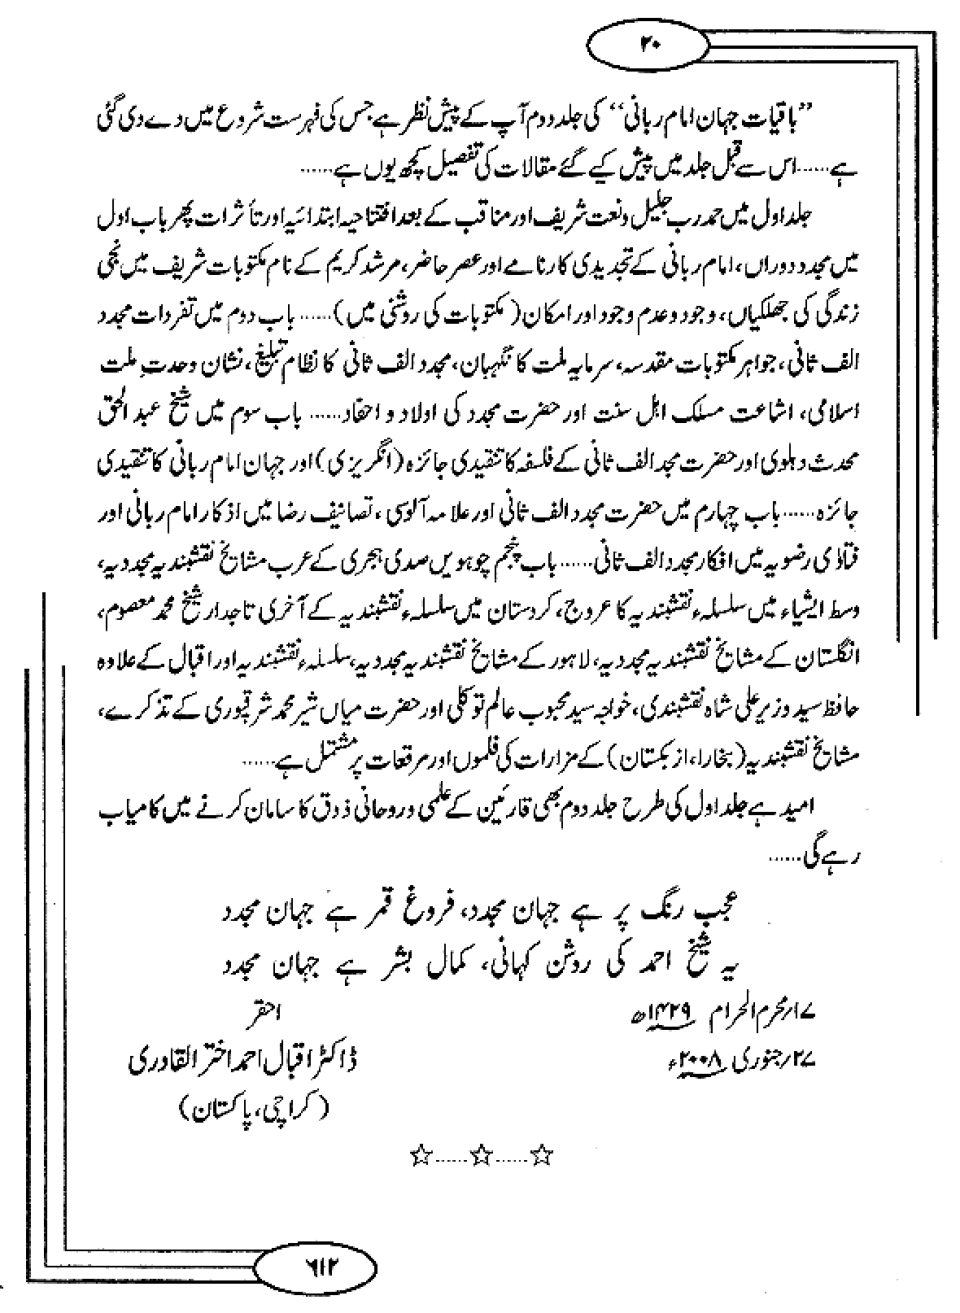 ۲۰
”باقیات جہان امام ربانی“ کی جلد دوم آپ کے پیش نظر ہے جس کی فہرست شروع میں دے دی گئی
ہے......اس سے قبل جلد میں پیش کیے گئے مقالات کی تفصیل کچھ یوں ہے......
جلد اول میں حمد رب جلیل و نعت شریف اور مناقب کے بعد افتتاحیہ ابتدائیہ اور تأثرات پھر باب اول
میں مجدد دوراں، امام ربانی کے تجدیدی کارنامے اور عصر حاضر، مرشد کریم کے نام مکتوبات شریف میں نجی
زندگی کی جھلکیاں، وجود و عدم وجود اور امکان (مکتوبات کی روشنی میں)...... باب دوم میں تفردات مجدد
الف ثانی، جواہر مکتوبات مقدسہ، سرمایہ ملت کا نگہبان، مجدد الف ثانی کا نظام تبلیغ، نشان وحدتِ ملت
اسلامی، اشاعت مسلک اہل سنت اور حضرت مجدد کی اولاد و احفاد...... باب سوم میں شیخ عبد الحق
محدث دہلوی اور حضرت مجد الف ثانی کے فلسفہ کا تنقیدی جائزہ (انگریزی) اور جہان امام ربانی کا تنقیدی
جائزہ......باب چہارم میں حضرت مجدد الف ثانی اور علامہ آلوسی، تصانیف رضا میں اذکار امام ربانی اور
فتاوٰی رضویہ میں افکار مجدد الف ثانی...... باب پنجم چوہویں صدی ہجری کے عرب مشایخ نقشبندیہ مجددیہ،
وسط ایشیاء میں سلسلہء نقشبندیہ کا عروج، کردستان میں سلسلہء نقشبندیہ کے آخری تاجدار شیخ محمد معصوم،
انگلستان کے مشایخ نقشبندیہ مجددیہ، لاہور کے مشایخ نقشبندیہ مجددیہ، سلسلہء نقشبندیہ اور اقبال کے علاوہ
حافظ سید وزیر علی شاہ نقشبندی، خواجہ سید محبوب عالم توکلی اور حضرت میاں شیر محمد شرقپوری کے تذکرے،
مشایخ نقشبندیہ (بخارا، ازبکستان) کے مزارات کی فلموں اور مرقعات پر مشتمل ہے......
امید ہے جلد اول کی طرح جلد دوم بھی قارئین کے علمی و روحانی ذوق کا سامان کرنے میں کامیاب
رہے گی......
عجب رنگ پر ہے جہان مجدد، فروغ قمر ہے جہان مجدد
یہ شیخ احمد کی روشن کہانی، کمال بشر ہے جہان مجدد
۱۷/محرم الحرام ۱۴۲۹ھ
احقر
۲۷/جنوری ۲۰۰۸ء
ڈاکٹر اقبال احمد اختر القادری
(کراچی، پاکستان)
☆......☆......☆
۶۱۲